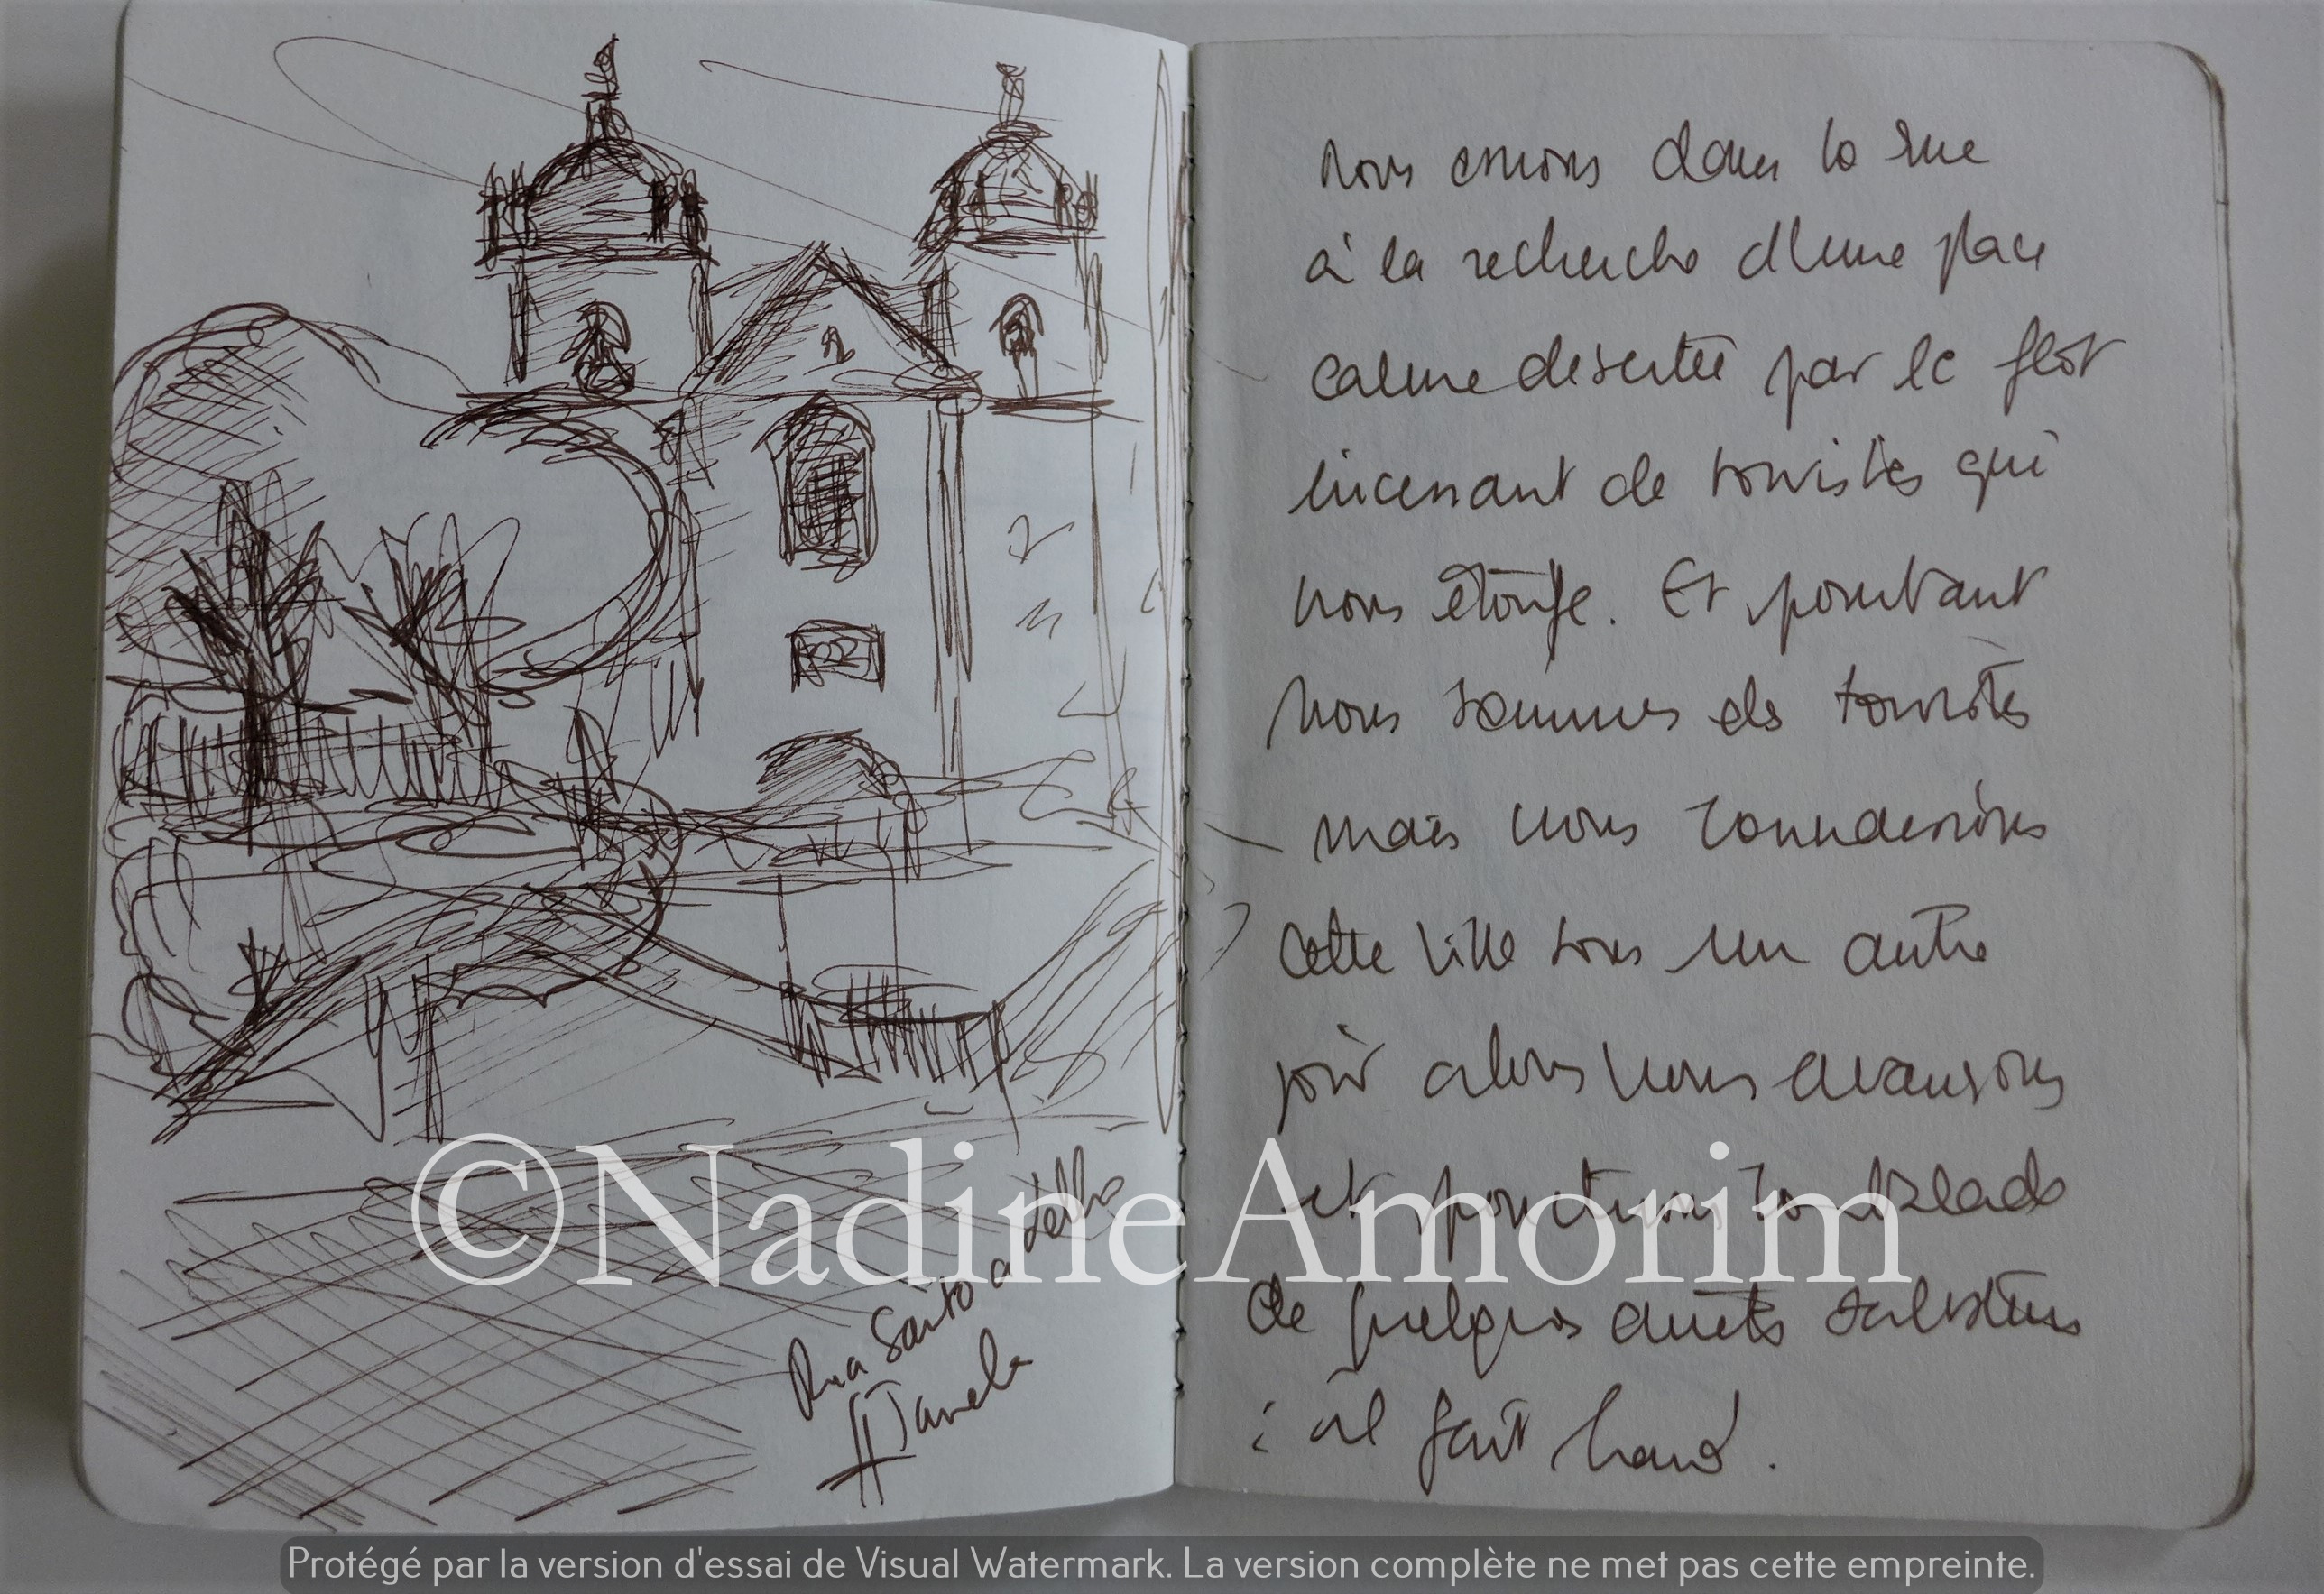 Rua Santo a
nous errons dans la rue
à la recherche d'une place
calme desertée par le flot
incessant de touristes qui
nous étouffe. Et pourtant
nous sommes des touristes
mais nous connaissions
cette ville sous un autre
jour alors nous avançons
et ponctuons la balade
de quelques arrêts salutaires
: il fait chaud.
©NadineAmorim
Protégé par la version d'essai de Visual Watermark. La version complète ne met pas cette empreinte.